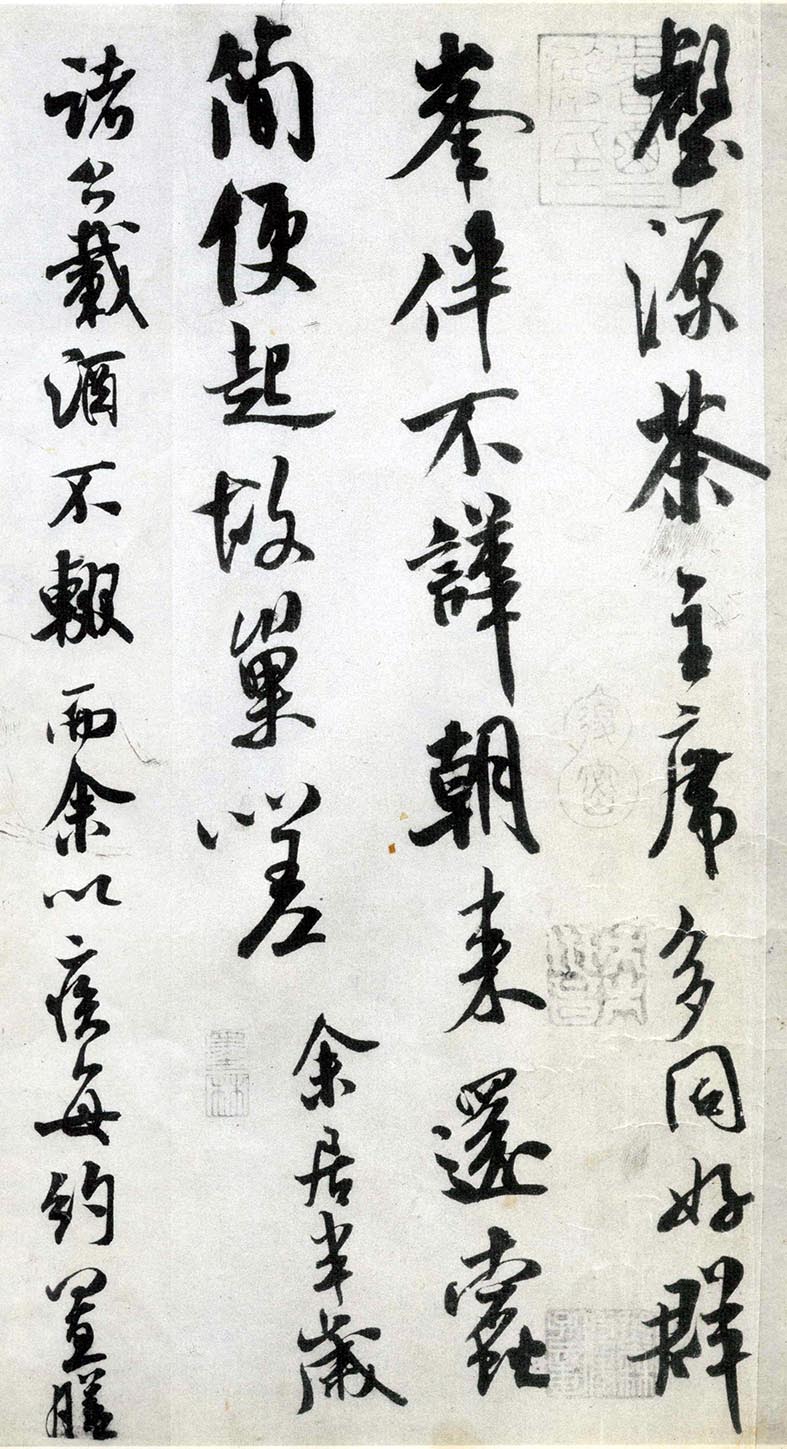 壑源茶主席多同好群
峯伴不譁朝来還蠹
簡便起故巢嗟
余居半歲
諸公載酒不輟而余以疾每約置膳
墨林